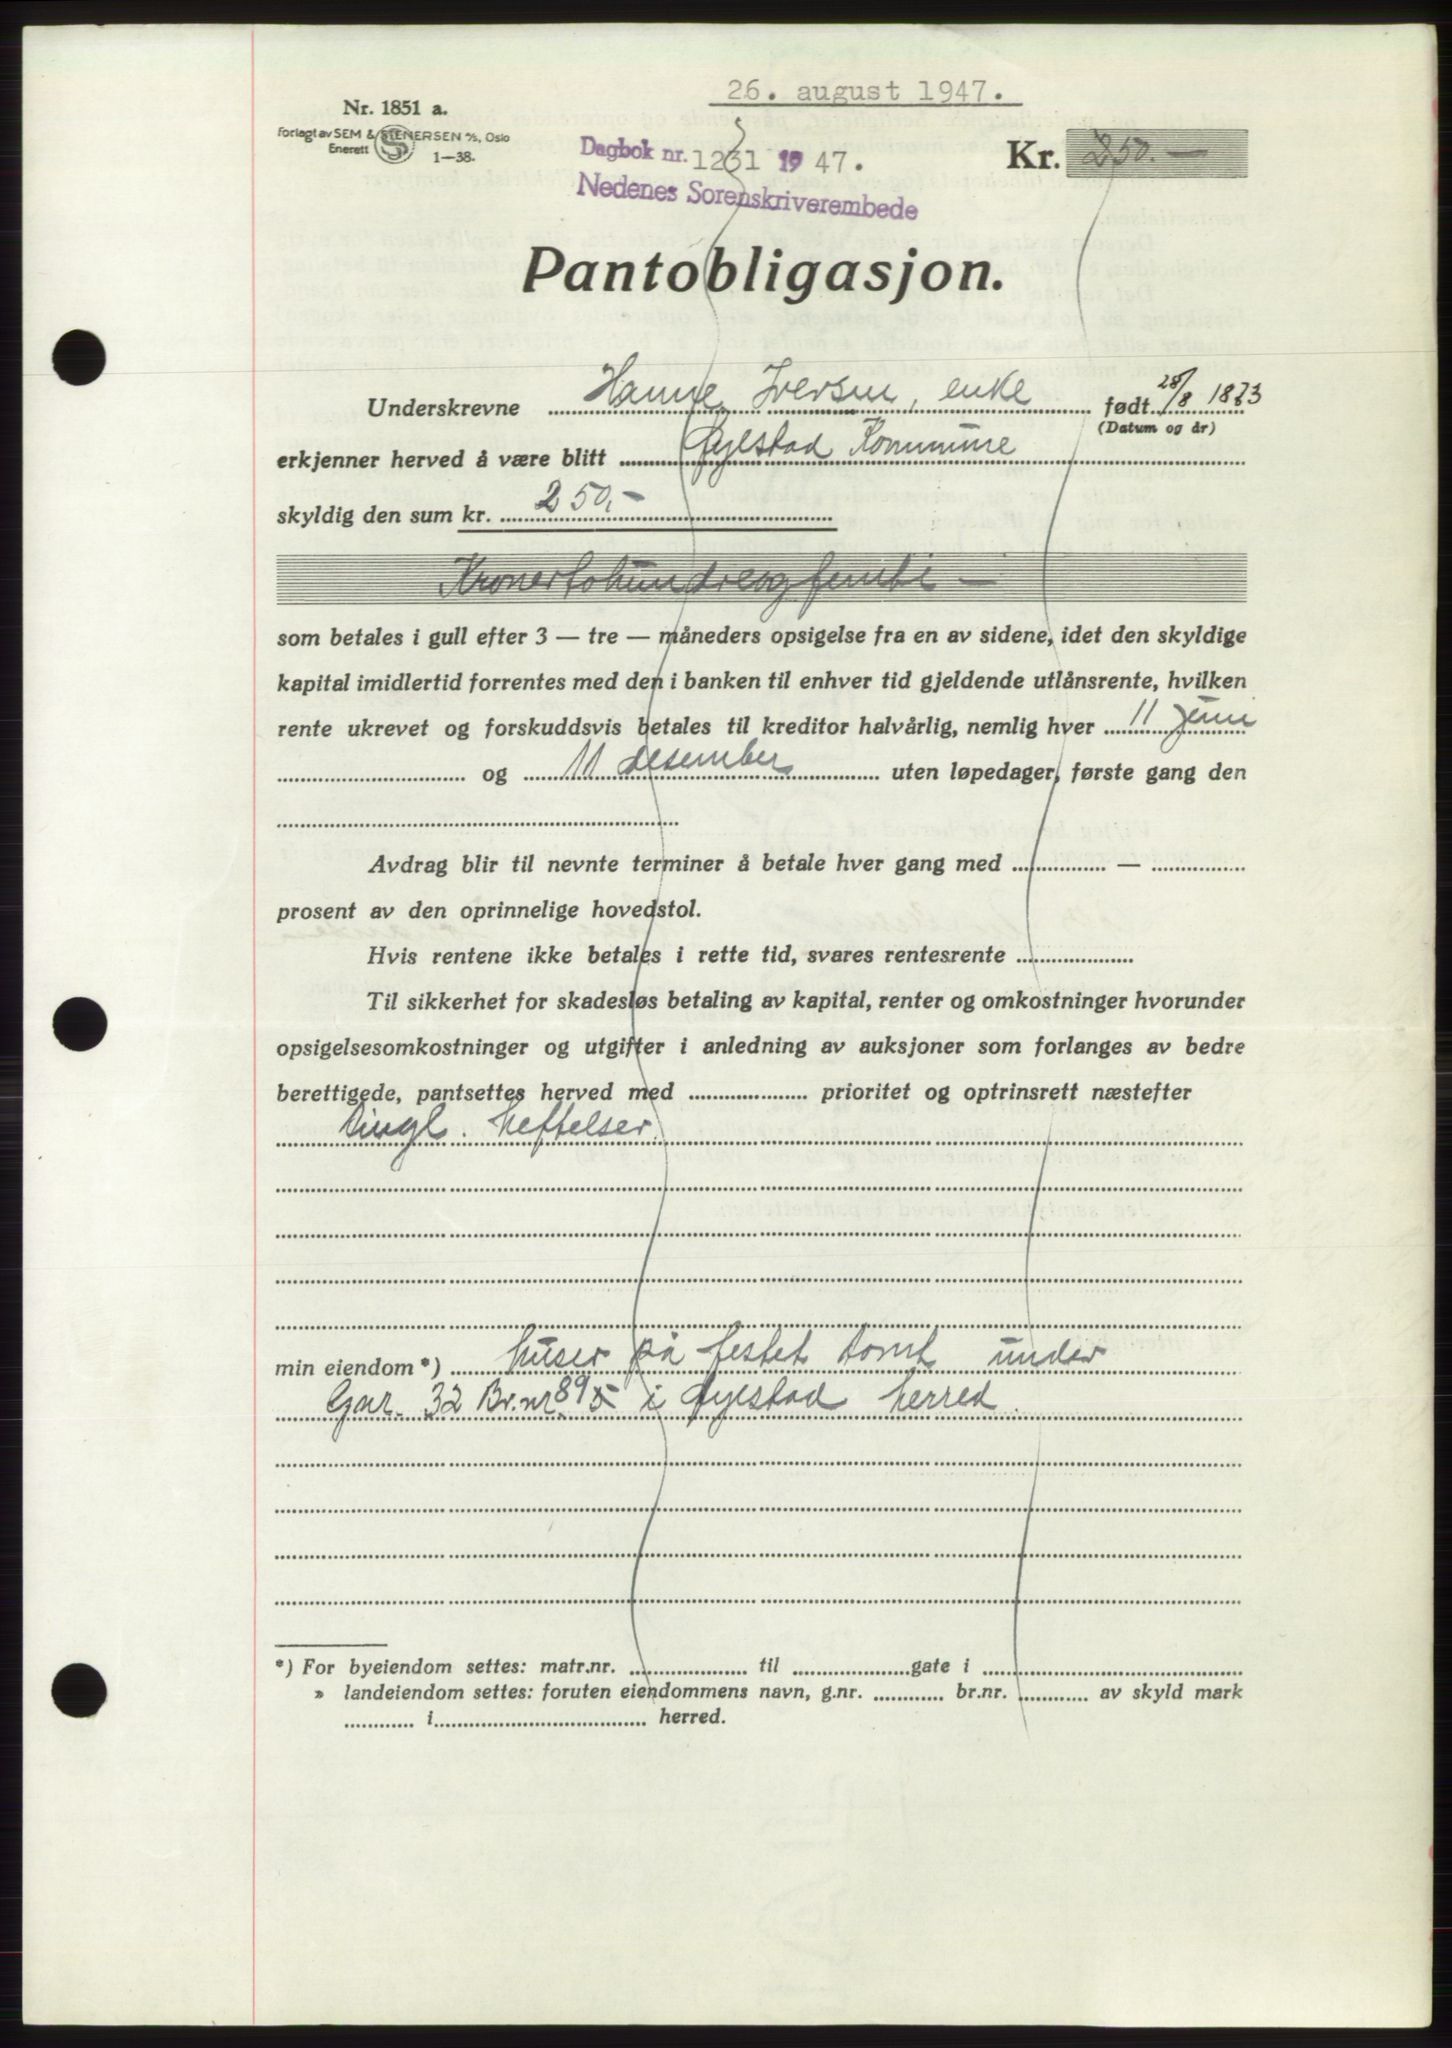 26. august 1947.
Nr. 1851 a.
Forlagt av SEM & STENERSEN A/S, Oslo
Enerett 1—38.
Dagbok nr. 1231 1947.
Nedenes Sorenskriverembede
Kr. 250.—
Pantobligasjon.
Underskrevne Hanne Iversen, enke født 28/8 1873
(Datum og år)
erkjenner herved å være blitt Øyestad Kommune
skyldig den sum kr. 250,-
Kronertohundreogfemti —
som betales i gull efter 3 — tre — måneders opsigelse fra en av sidene, idet den skyldige
kapital imidlertid forrentes med den i banken til enhver tid gjeldende utlånsrente, hvilken
rente ukrevet og forskuddsvis betales til kreditor halvårlig, nemlig hver 11 juni
og 11 desember uten løpedager, første gang den
Avdrag blir til nevnte terminer å betale hver gang med —
prosent av den oprinnelige hovedstol.
Hvis rentene ikke betales i rette tid, svares rentesrente
Til sikkerhet for skadesløs betaling av kapital, renter og omkostninger hvorunder
opsigelsesomkostninger og utgifter i anledning av auksjoner som forlanges av bedre
berettigede, pantsettes herved med prioritet og optrinsrett næstefter
tingl. heftelser.
min eiendom *) huser på festet tomt under
Gnr. 32 Br.nr 895 i Øyestad herred.
*) For byeiendom settes: matr.nr. til gate i
» landeiendom settes: foruten eiendommens navn, g.nr. br.nr. av skyld mark
i herred.